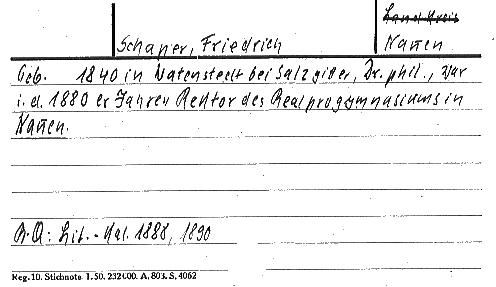 Land Kreis
Schaper, Friedrich Nauen
Geb. 1840 in Watenstedt bei Salzgitter, Dr. phil., war
i. d. 1880er Jahren Rektor des Realprogymnasiums in
Nauen.
B. Q: Lit.-Kal. 1888, 1890
Reg. 10. Stichnote 1. 50. 232000. A. 803. S. 4062